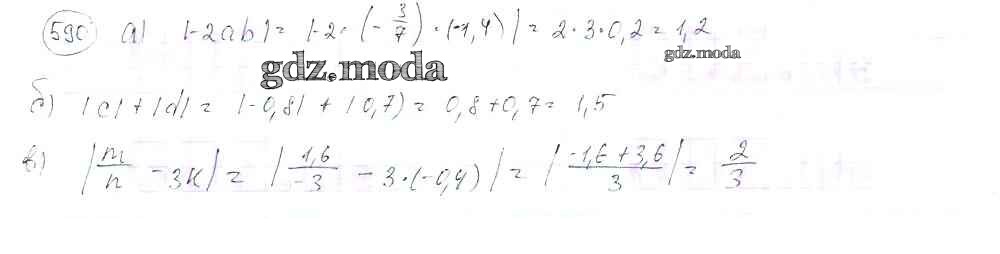 590 а) |-2ab| = |-2 · (-3/7) · (-1,4)| = 2 · 3 · 0,2 = 1,2
gdz.moda
gdz.moda
б) |c| + |d| = |-0,8| + |0,7) = 0,8 + 0,7 = 1,5
в) |m/n - 3k| = |1,6/-3 - 3 · (-0,4)| = |-1,6 + 3,6/3| = 2/3